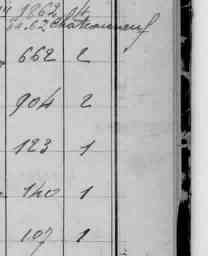 1862
Chateauneuf
662 2
904 2
123 1
140 1
107 1